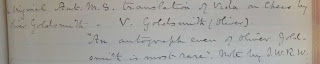 Original Aut. M.S. translation of Vida on Chess by
Oliver Goldsmith. - V. Goldsmith (Oliver).
"An autograph even of Oliver Gold-
smith is most rare". Note by J.W.R.W.